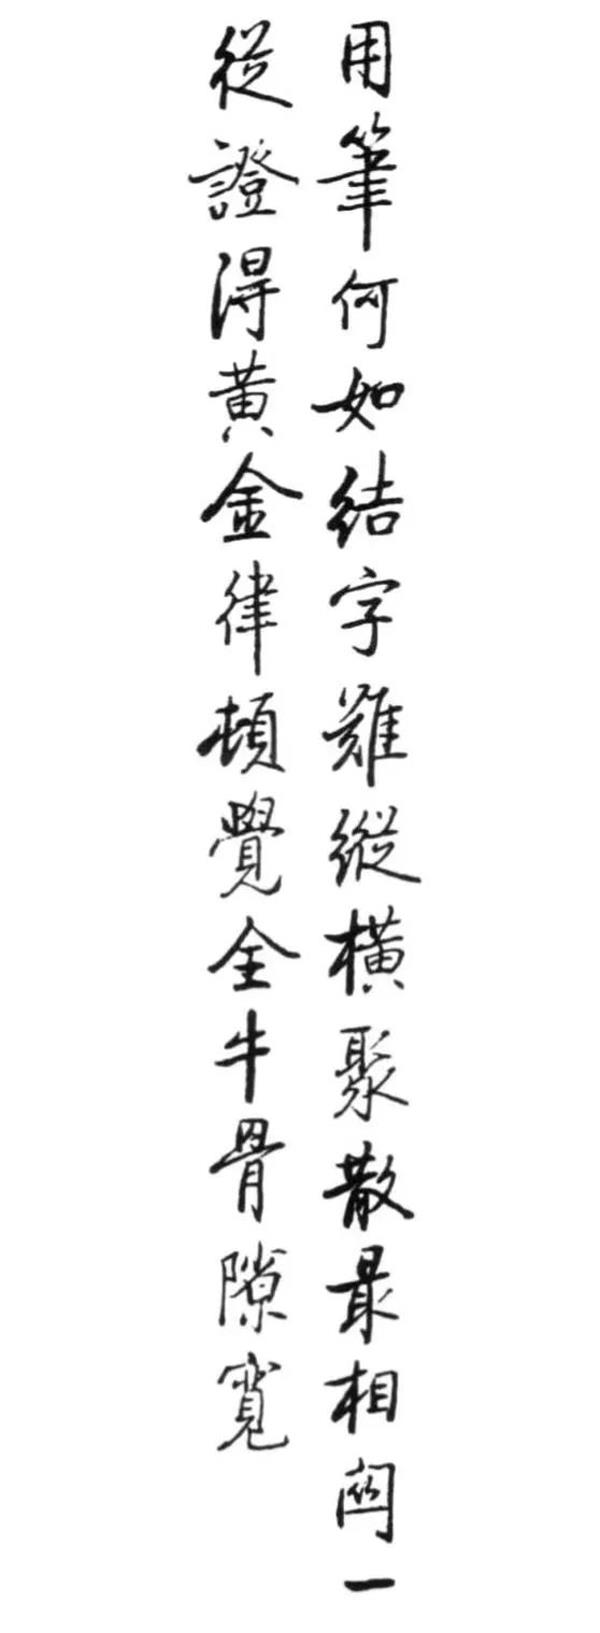 用筆何如結字難縱橫聚散最相關一
從證得黄金律頓覺全牛骨隙寬